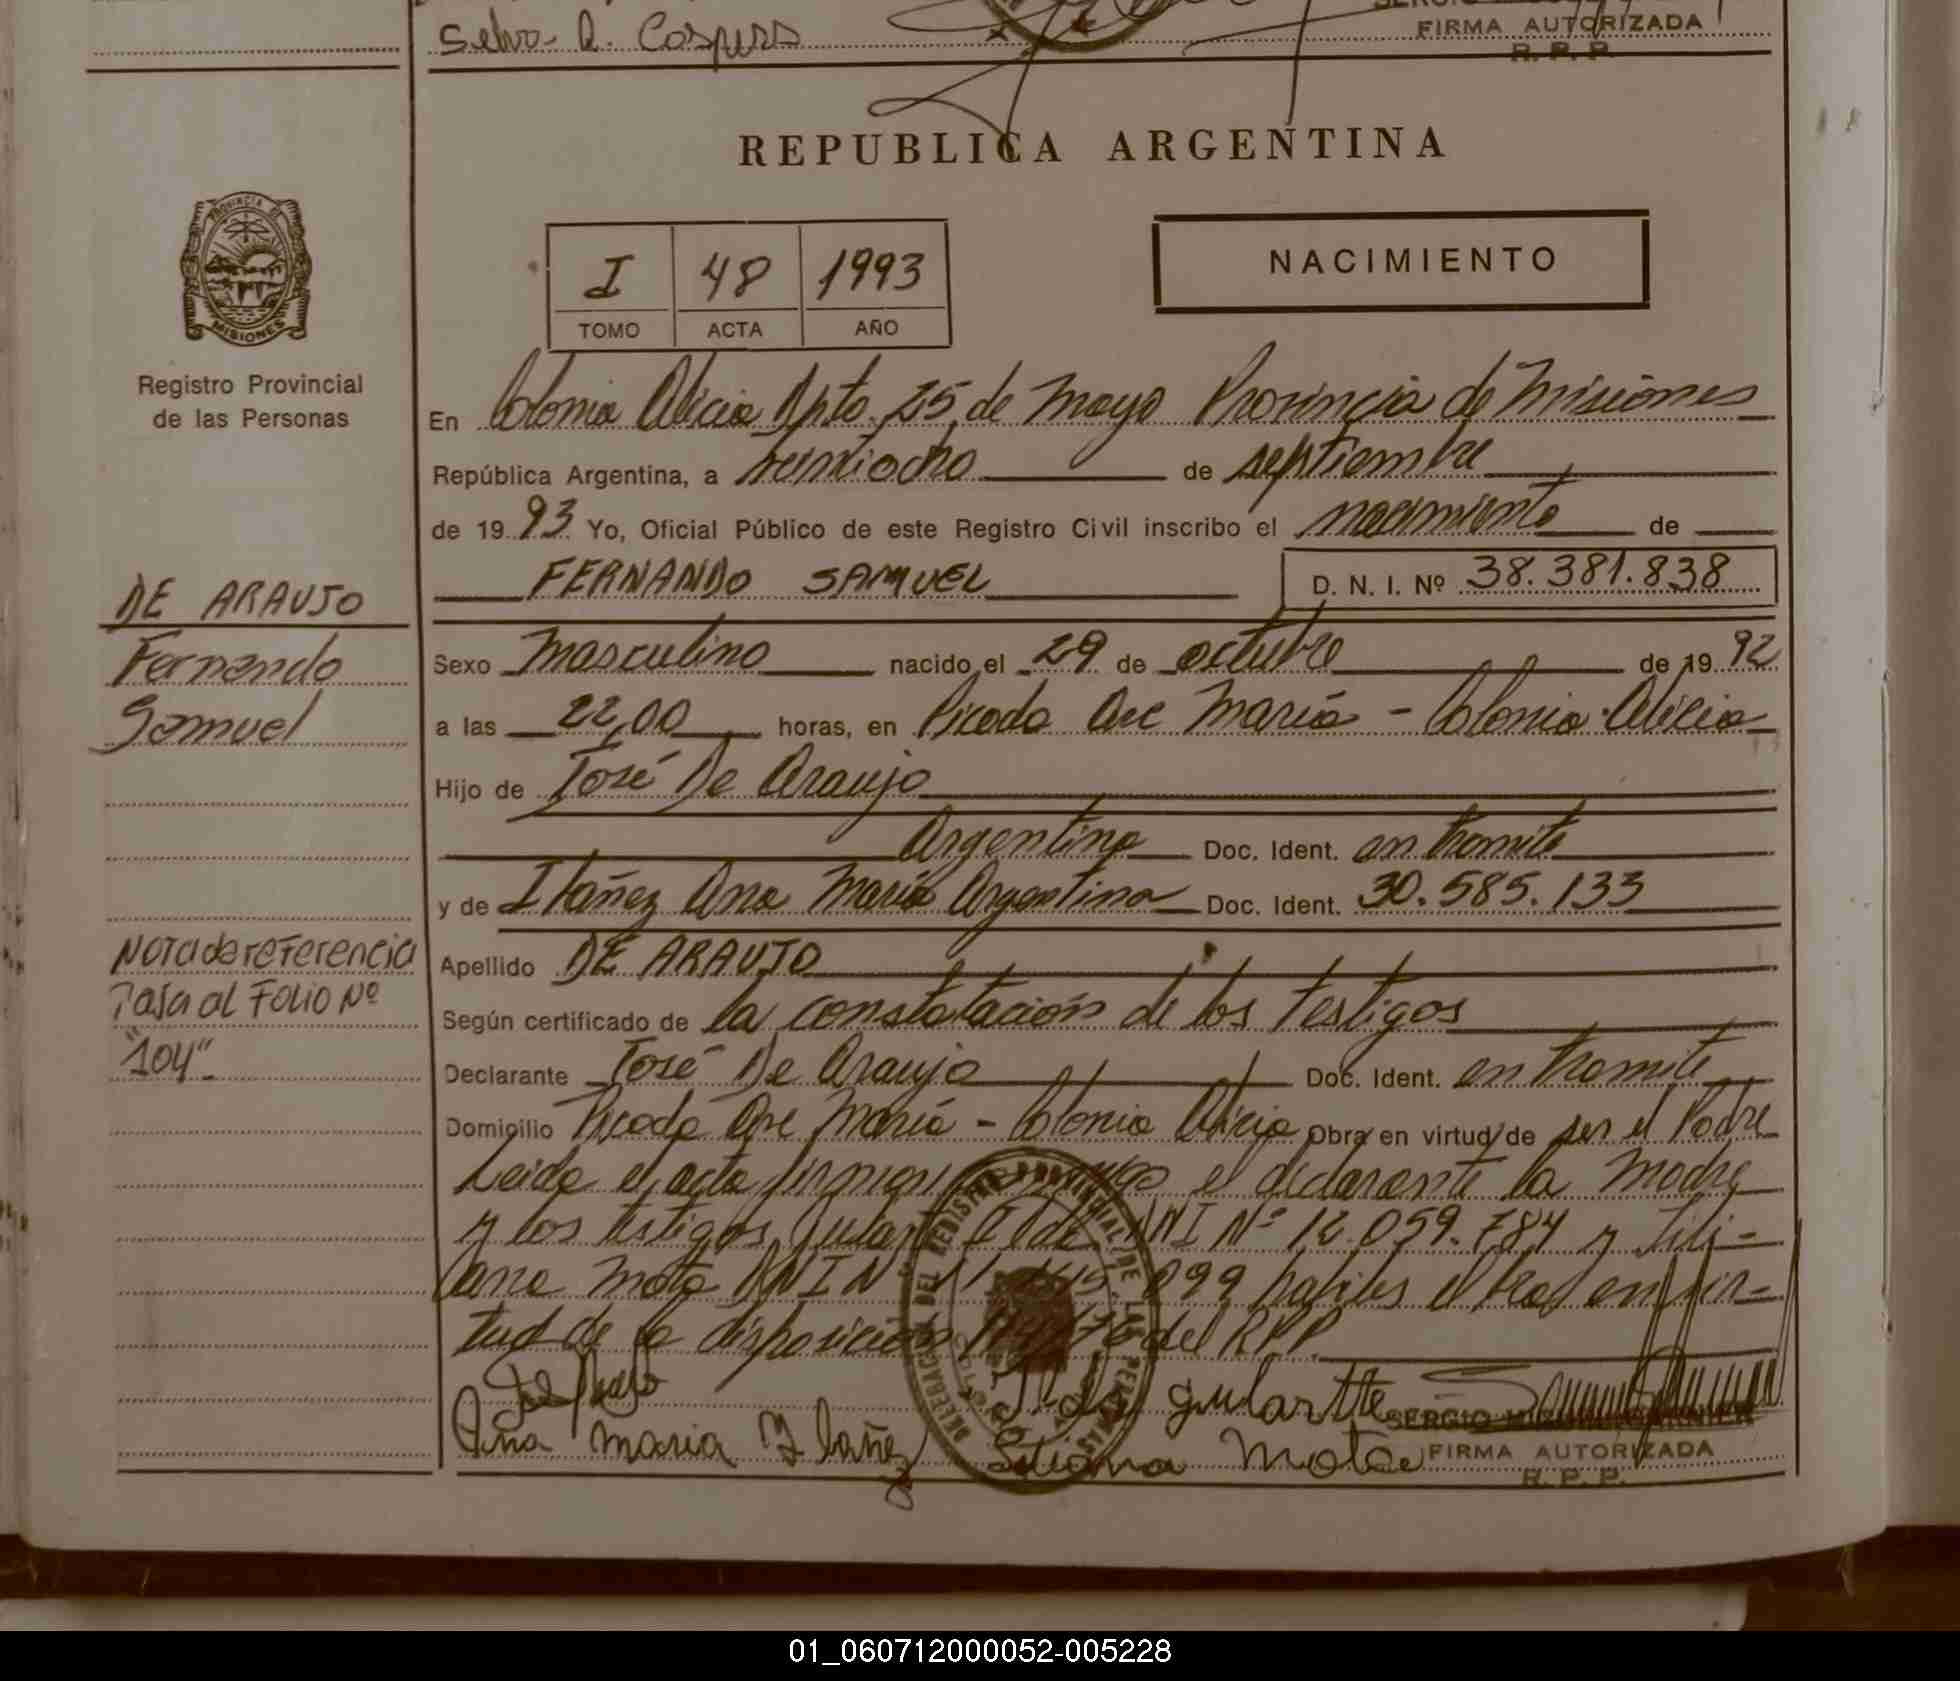 Selvo R. Cospers
FIRMA AUTORIZADA
R. P. P.
REPUBLICA ARGENTINA
PROVINCIA DE
MISIONES
Registro Provincial
de las Personas
I 48 1993
TOMO ACTA AÑO
NACIMIENTO
En Colonia Alicia Dpto. 25 de Mayo Provincia de Misiones
República Argentina, a veintiocho de septiembre
de 19 93 Yo, Oficial Público de este Registro Civil inscribo el nacimiento de
FERNANDO SAMUEL D. N. I. Nº 38.381.838
DE ARAUJO
Fernando
Samuel
Sexo Masculino nacido el 29 de octubre de 19 92
a las 22,00 horas, en Picada Ave María - Colonia Alicia
Hijo de José De Araujo
Argentino Doc. Ident. en tramite
y de Ibañez Ana María Argentina Doc. Ident. 30.585.133
Apellido DE ARAUJO
Nota de referencia
Pasa al Folio Nº
"104".
Según certificado de la constatación de los testigos
Declarante José De Araujo Doc. Ident. en tramite
Domicilio Picada Ave María - Colonia Alicia Obra en virtud de ser el Padre
Leida el acta firman el declarante la Madre
y los testigos DNI Nº 12.059.784 y Lili-
ana Mota DNI N 099 habiles en vir-
tud de la disposición del RPP.
Ilda Gularte
Ana Maria Ibañez Liliana Mota
SERGIO
FIRMA AUTORIZADA
R. P. P.
01_060712000052-005228